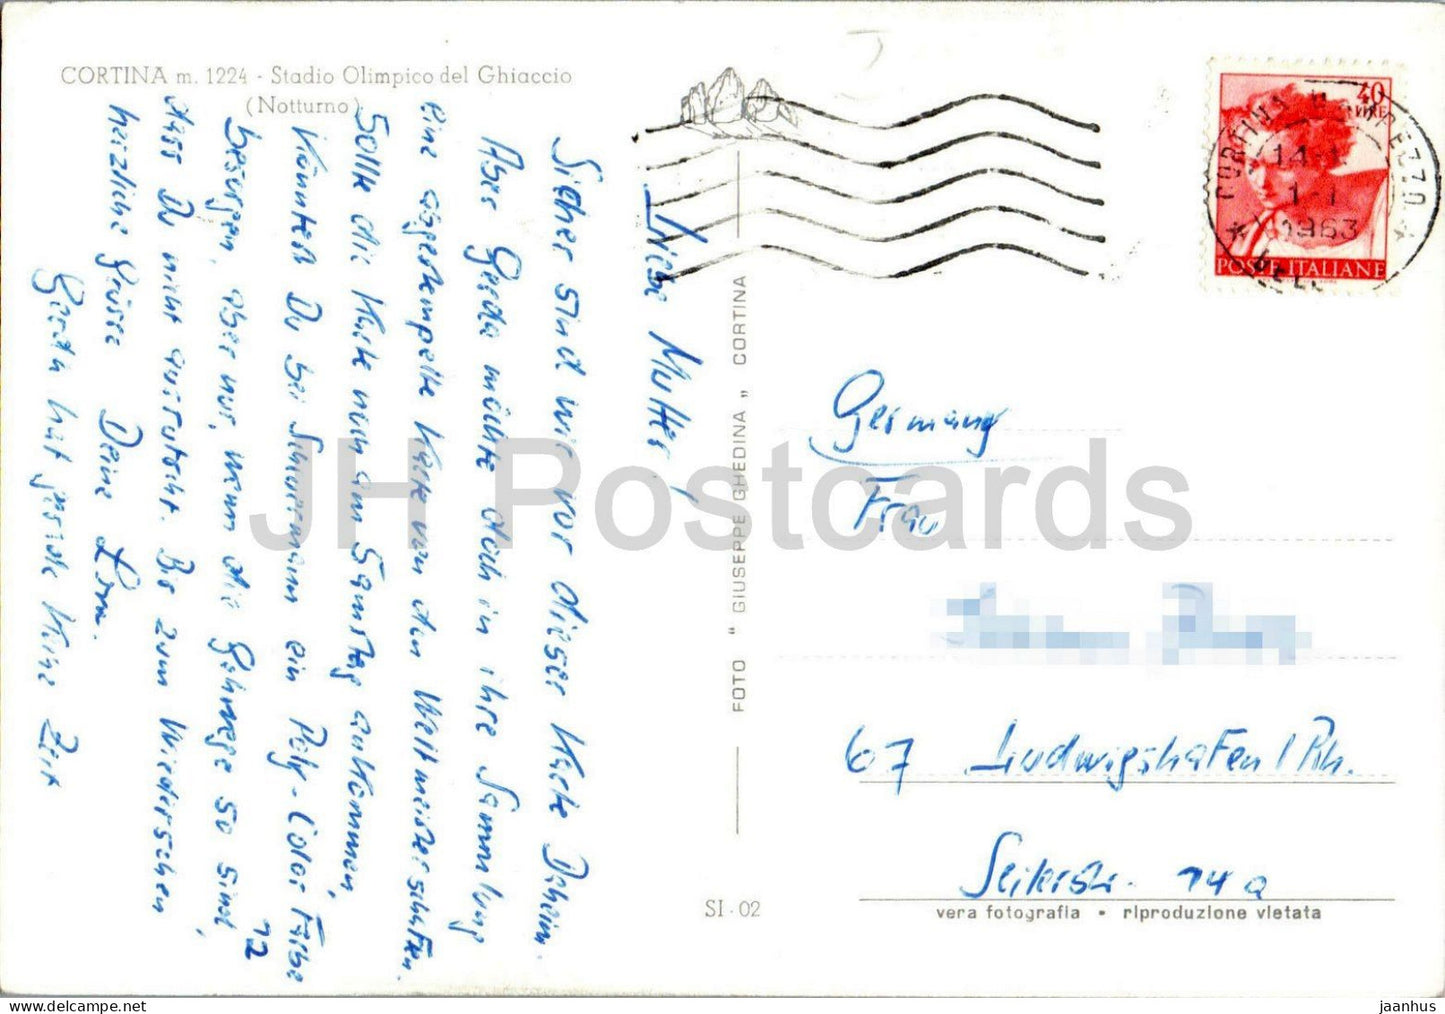 CORTINA m. 1224 - Stadio Olimpico del Ghiaccio
(Notturno)
Liebe Mutter!
Sicher sind wir vor dieser Karte Daheim.
Aber Gerda möchte doch in ihre Sammlung
eine abgestempelte Karte von den Weltmeisterschaften.
Sollte die Karte noch am Samstag ankommen,
könntest Du bei Schuermann ein Poly-Color Farbe
12
besorgen, aber nur, wenn die Gehwege so sind,
dass Du nicht ausrutscht. Bis zum Wiedersehen
herzliche Grüsse Deine
Gerda hat gerade keine Zeit
FOTO " GIUSEPPE GHEDINA " CORTINA
SI - 02
40
LIRE
CORTINA D'AMPEZZO
14-
1-1
1963
POSTE ITALIANE
Germany
Frau
67 Ludwigshafen/Rh.
14a
vera fotografia • riproduzione vietata
JH Postcards
jaanhus - https://www.hippostcard.com/store/jaanhus